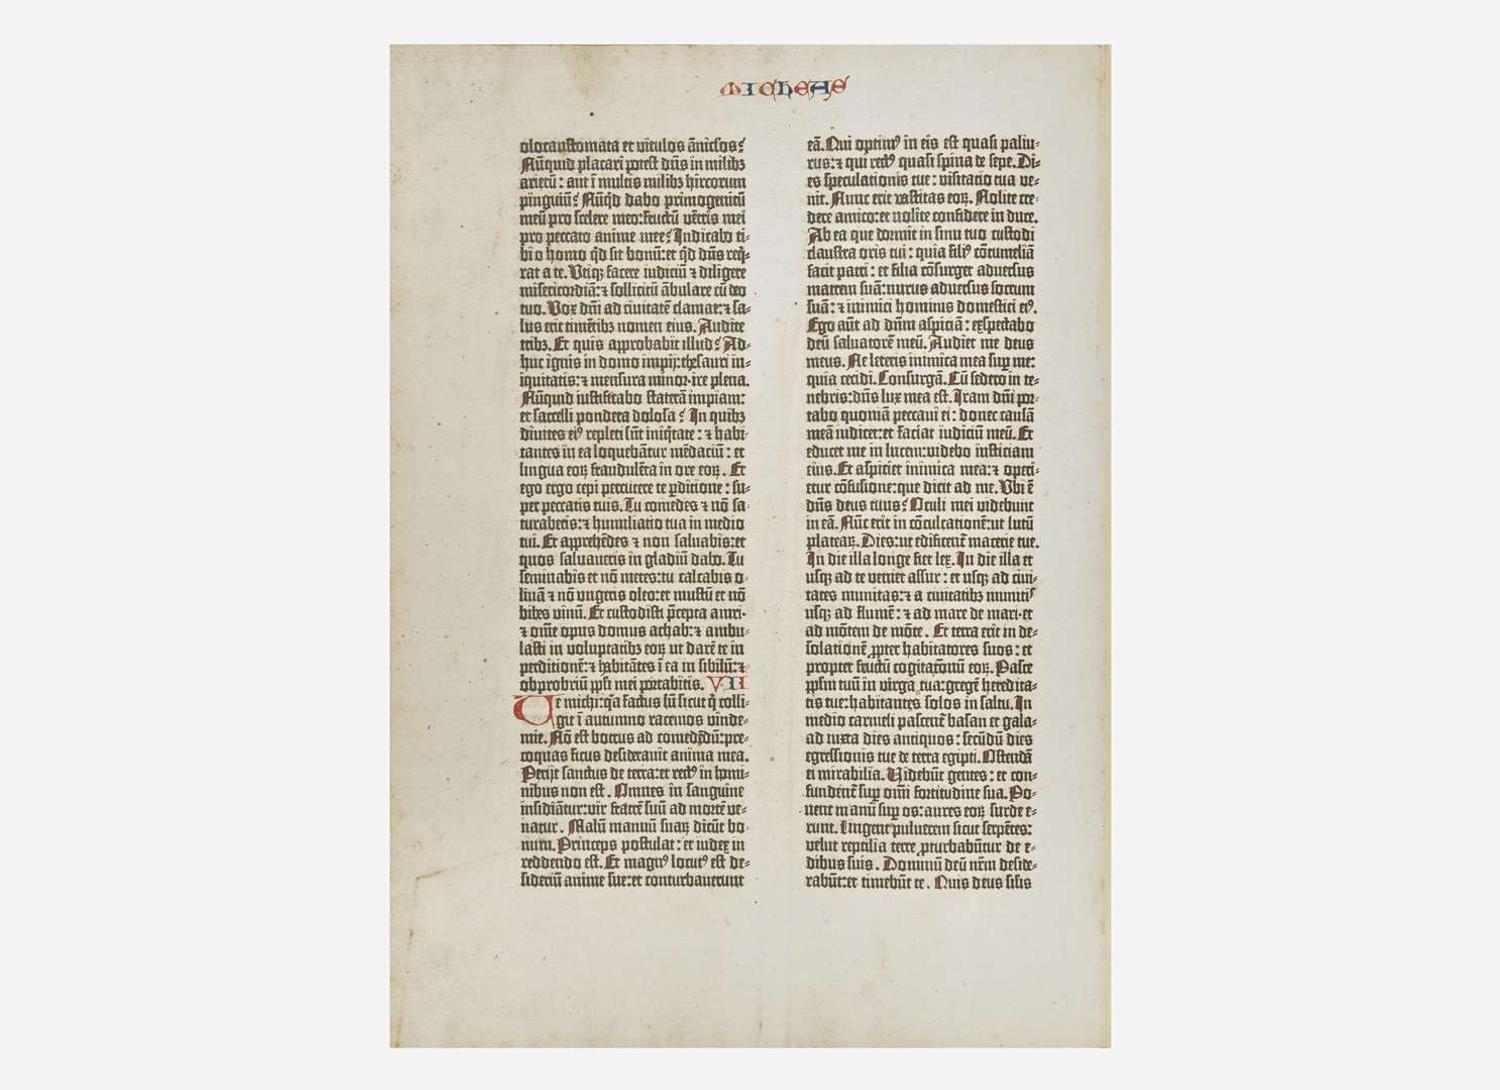 Micheas
olocaustomata et vitulos ānicłos?
Nūquid placari potest dn̄s in milibꝫ
arietū: aut ī multis milibꝫ hircorum
pinguiū? Nūqđ dabo primogenitū
meū pro scelere meo: fructū vētris mei
pro peccato anime mee? Indicabo ti-
bi o homo qđ sit bonū: et qđ dn̄s req̄-
rat a te. Vtiqꝫ facere iudiciū ⁊ diligere
misericordiā: ⁊ sollicitū ābulare cū deo
tuo. Vox dn̄i ad civitatē clamat: ⁊ sa-
lus erit timētibꝫ nomen eius. Audite
tribꝫ. Et quis approbabit illud? Ad-
huc ignis in domo impij: thesauri in-
iquitatis: ⁊ mensura minor ire plena.
Nūquid iustificabo staterā impiam:
et saccelli pondera dolosa? In quibꝫ
divites eiꝰ repleti sūt iniq̄tate: ⁊ habi-
tantes in ea loquebātur mēdaciū: et
lingua eoꝝ fraudulēta in ore eoꝝ. Et
ego ergo cepi percutere te ꝑditione: su-
per peccatis tuis. Tu comedes ⁊ nō sa-
turaberis: ⁊ humiliatio tua in medio
tui. Et apprehēdes ⁊ non salvabis: et
quos salvaveris in gladiū dabo. Tu
seminabis et nō metes: tu calcabis o-
livā ⁊ nō vngeris oleo: et mustū et nō
bibes vinū. Et custodisti p̄cepta amri:
⁊ om̄e opus domus achab: ⁊ ambu-
lasti in voluptatibꝫ eoꝝ ut darē te in
perditionē: ⁊ habitātes ī ea in sibilū: ⁊
obprobriū pp̄li mei portabitis. VII
Ve michi: q̄a factus sū sicut q̄ colli-
git ī autumno racemos vinde-
mie. Nō est botrus ad comedēdū: pre-
coquas ficus desideravit anima mea.
Perijt sanctus de terra: et rectꝰ in homi-
nibus non est. Omnes in sanguine
insidiātur: vir fratrē suū ad mortē ve-
natur. Malū manuū suaꝝ dicūt bo-
num. Princeps postulat: et iudex in
reddendo est. Et magnꝰ locutꝰ est de-
siderium anime sue: et conturbaverunt
eā. Qui optimꝰ in eis est quasi paliu-
rus: ⁊ qui rectꝰ quasi spina de sepe. Di-
es speculationis tue: visitatio tua ve-
nit. Nunc erit vastitas eoꝝ. Nolite cre-
dere amico: et nolite confidere in duce.
Ab ea que dormit in sinu tuo custodi
claustra oris tui: quia filiꝰ cōtumeliā
facit patri: et filia cōsurget adversus
matrem suā: nurus adversus socrum
suā: ⁊ inimici hominis domestici eiꝰ.
Ego aūt ad dn̄m aspiciā: exspectabo
deū salvatorē meū. Audiet me deus
meus. Ne leteris inimica mea suꝑ me:
quia cecidi. Consurgā. Cū sedero in te-
nebris: dn̄s lux mea est. Iram dn̄i por-
tabo quoniā peccavi ei: donec causā
meā iudicet: et faciat iudiciū meū. Et
educet me in lucem: videbo iusticiam
eius. Et aspiciet inimica mea: ⁊ operi-
etur cōfusione: que dicit ad me. Vbi ē
dn̄s deus tuus? Oculi mei videbunt
in eā. Nūc erit in cōculcationē: ut lutū
plateaꝝ. Dies: ut edificent̄ macerie tue.
In die illa longe fiet lex. In die illa et
usqꝫ ad te veniet assur: et usqꝫ ad civi-
tates munitas: ⁊ a civitatibꝫ munitiˢ
usqꝫ ad flumē: ⁊ ad mare de mari: et
ad mōtem de mōte. Et terra erit in de-
solationē ꝓpter habitatores suos: et
propter fructū cogitationū eoꝝ. Pasce
pp̄lm tuū in virga tua: gregē heredita-
tis tue: habitantes solos in saltu. In
medio carmeli pascent̄ basan et gala-
ad iuxta dies antiquos: secūdū dies
egressionis tue de terra egipti. Ostendā
ei mirabilia. Videbūt gentes: et con-
fundent̄ suꝑ omni fortitudine sua. Po-
nent manū suꝑ os: aures eoꝝ surde e-
runt. Lingent pulverem sicut serpētes:
velut reptilia terre ꝓturbabūtur de e-
dibus suis. Dominū deū nr̄m deside-
rabūt: et timebūt te. Quis deus silis